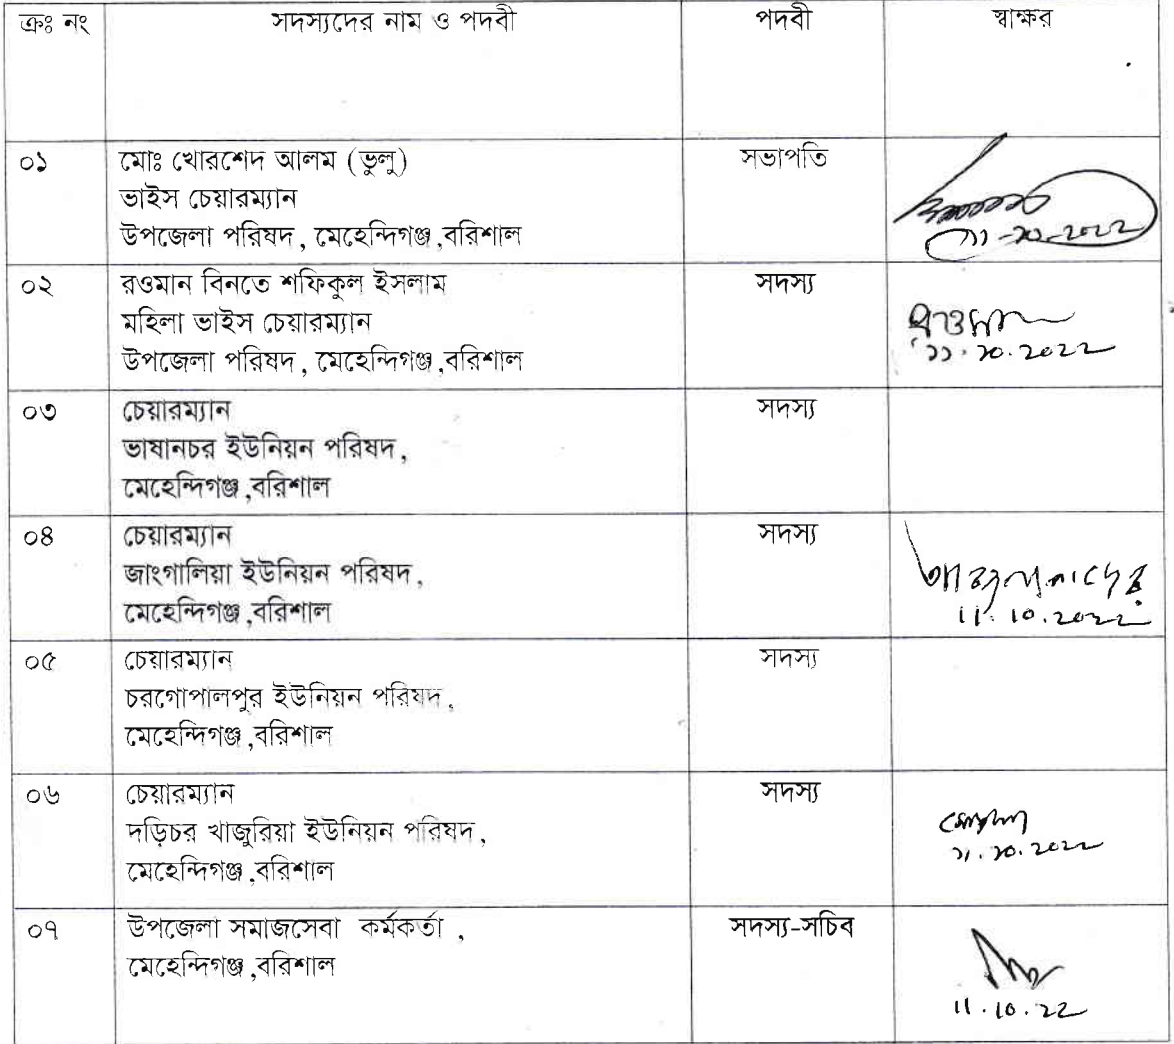 ক্রঃ নং সদস্যদের নাম ও পদবী পদবী স্বাক্ষর
০১ মোঃ খোরশেদ আলম (ভুলু) সভাপতি
ভাইস চেয়ারম্যান
উপজেলা পরিষদ, মেহেন্দিগঞ্জ,বরিশাল
১১-১০-২০২২
০২ রওমান বিনতে শফিকুল ইসলাম সদস্য
মহিলা ভাইস চেয়ারম্যান
উপজেলা পরিষদ, মেহেন্দিগঞ্জ,বরিশাল
১১.১০.২০২২
০৩ চেয়ারম্যান সদস্য
ভাষানচর ইউনিয়ন পরিষদ,
মেহেন্দিগঞ্জ,বরিশাল
০৪ চেয়ারম্যান সদস্য
জাংগালিয়া ইউনিয়ন পরিষদ,
মেহেন্দিগঞ্জ,বরিশাল
11.10.2022
০৫ চেয়ারম্যান সদস্য
চরগোপালপুর ইউনিয়ন পরিষদ,
মেহেন্দিগঞ্জ,বরিশাল
০৬ চেয়ারম্যান সদস্য
দড়িচর খাজুরিয়া ইউনিয়ন পরিষদ,
মেহেন্দিগঞ্জ,বরিশাল
১১.১০.২০২২
০৭ উপজেলা সমাজসেবা কর্মকর্তা , সদস্য-সচিব
মেহেন্দিগঞ্জ,বরিশাল
11.10.22